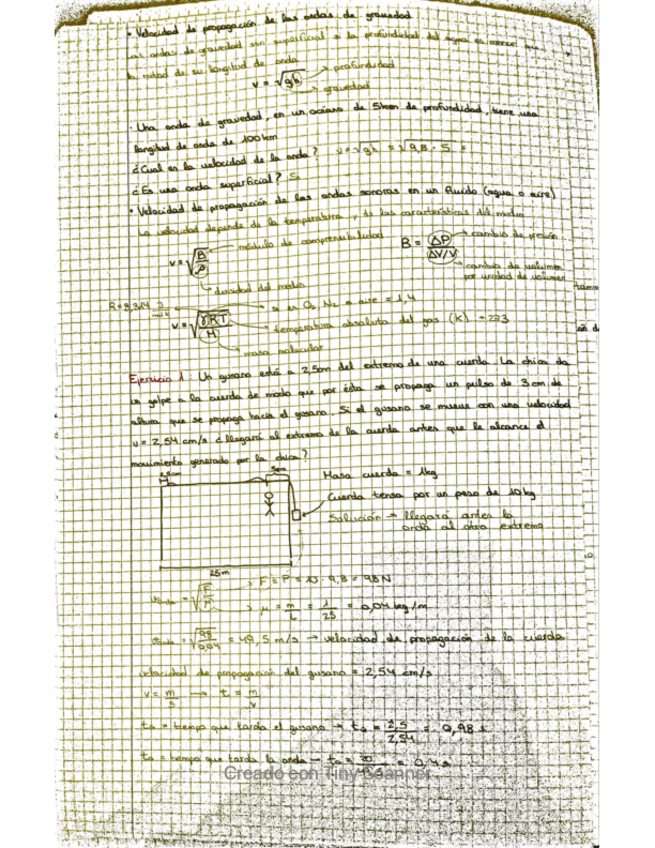 • Velocidad de propagación de las ondas de gravedad
Las ondas de gravedad son superficial si la profundidad del agua es menor que
la mitad de su longitud de onda
v = √gh → profundidad
→ gravedad
• Una onda de gravedad, en un océano de 5km de profundidad, tiene una
longitud de onda de 100km
¿Cual es la velocidad de la onda? v = √gh = √9,8 · 5 =
¿Es una onda superficial? Si
• Velocidad de propagación de las ondas sonoras en un fluido (agua o aire)
La velocidad depende de la temperatura y de las características del medio
v = √B/ρ → módulo de compresibilidad B = ΔP/ΔV/V → cambio de presión
→ cambio de volumen
por unidad de volumen
→ densidad del medio
R = 8,314
v = √γRT/M → en O₂, N₂ o aire = 1,4
→ temperatura absoluta del gas (K) - 273
→ masa molecular
Ejercicio 1 Un gusano está a 2,5cm del extremo de una cuerda. La chica da
un golpe a la cuerda de modo que por ésta se propaga un pulso de 3 cm de
altura que se propaga hacia el gusano. Si el gusano se mueve con una velocidad
v = 2,54 cm/s ¿llegará al extremo de la cuerda antes que le alcance el
movimiento generado por la chica?
2,5cm 5m
Masa cuerda = 1kg
Cuerda tensa por un peso de 10kg
Solución → llegará antes la
onda al otro extremo
25m
= √F/μ → F = P = 10 · 9,8 = 98N
→ μ = m/L = 1/25 = 0,04 kg/m
= √98/0,04 = 49,5 m/s → velocidad de propagación de la cuerda
velocidad de propagación del gusano = 2,54 cm/s
v = m/s → t = m/v
= tiempo que tarda el gusano → = 2,5/2,54 = 0,98 s
= tiempo que tarda la onda → = 0,4s
Creado con TinyScanner